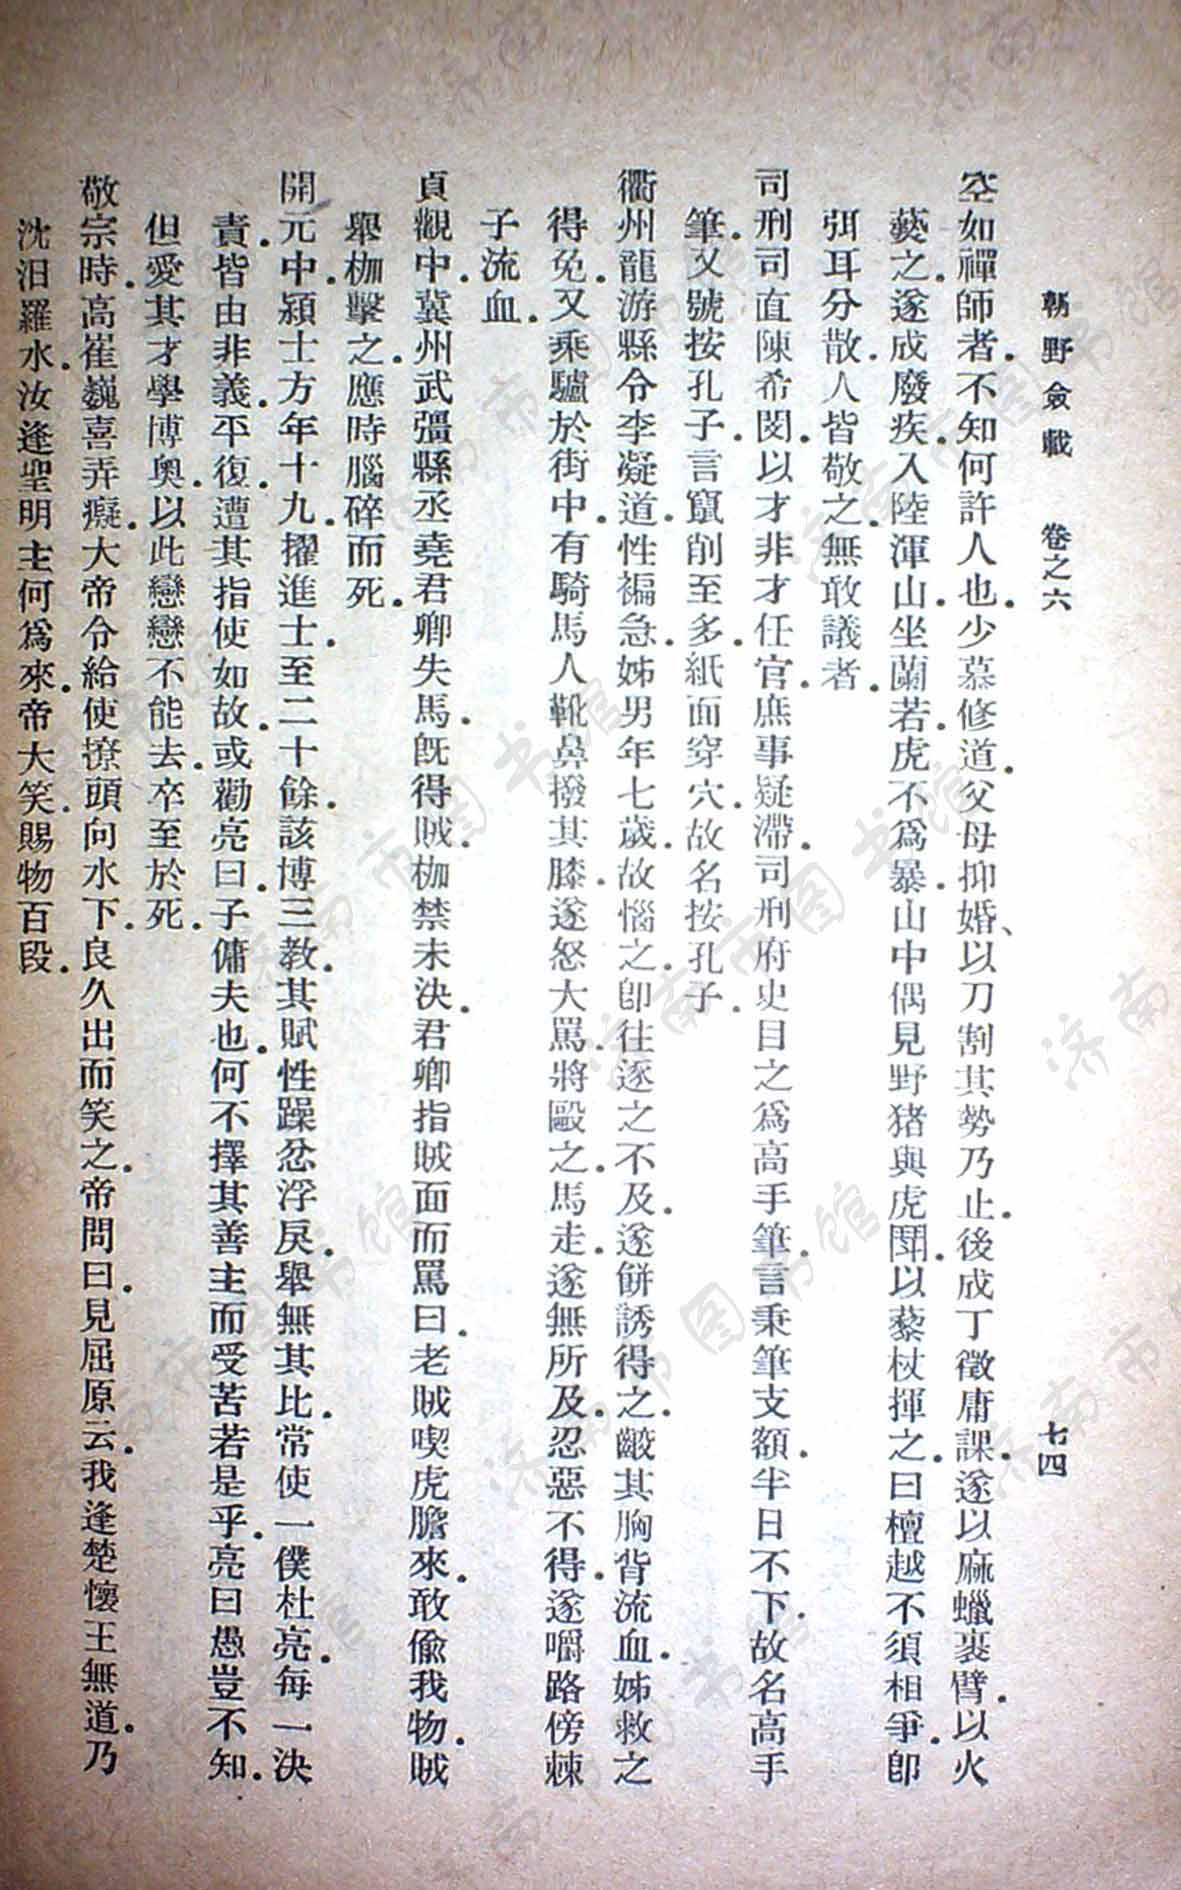 朝野僉載　卷之六　七四
空如禪師者．不知何許人也．少慕修道．父母抑婚、以刀割其勢乃止．後成丁徵庸課．遂以麻蠟裹臂．以火
爇之．遂成廢疾．入陸渾山．坐蘭若．虎不爲暴．山中偶見野猪與虎鬭．以藜杖揮之．曰檀越不須相爭．卽
弭耳分散．人皆敬之．無敢議者．
司刑司直陳希閔．以才非才任官．庶事疑滯．司刑府史目之爲高手筆．言秉筆支額．半日不下．故名高手
筆．又號按孔子．言竄削至多．紙面穿穴．故名按孔子．
衢州龍游縣令李凝道．性褊急．姊男年七歲．故惱之．卽往逐之不及．遂餅誘得之．齩其胸背流血．姊救之
得免．又乘驢於街中．有騎馬人靴鼻撥其膝．遂怒大罵．將毆之．馬走．遂無所及．忍惡不得．遂嚼路傍棘
子流血．
貞觀中．冀州武彊縣丞堯君卿失馬．旣得賊．枷禁未決．君卿指賊面而罵曰．老賊喫虎膽來．敢偷我物．賊
舉枷擊之．應時腦碎而死．
開元中．潁士方年十九．擢進士．至二十餘．該博三教．其賦性躁忿浮戾．舉無其比．常使一僕杜亮．每一決
責．皆由非義．平復．遭其指使如故．或勸亮曰．子傭夫也．何不擇其善主而受苦若是乎．亮曰愚豈不知．
但愛其才學博奧．以此戀戀不能去．卒至於死．
敬宗時．高崔巍喜弄癡．大帝令給使撩頭向水下．良久出而笑之．帝問曰．見屈原云．我逢楚懷王無道．乃
沈汨羅水．汝逢聖明主何爲來．帝大笑．賜物百段．
济南市图书馆